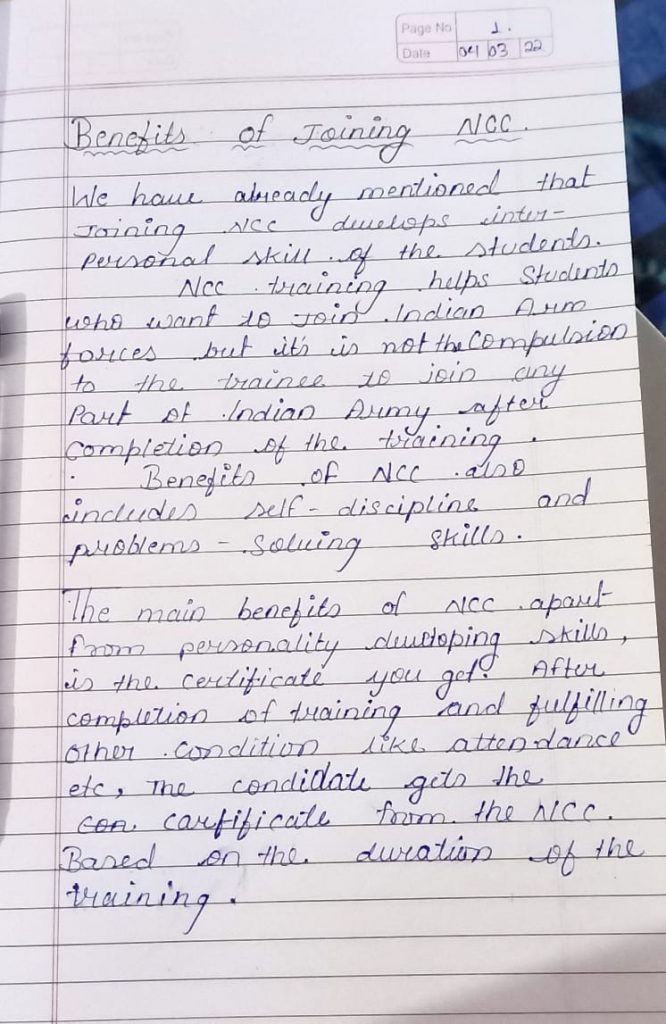 Page No 1.
Date 04 03 22
Benefits of Joining NCC.
We have already mentioned that
Joining NCC develops inter-
personal skill of the students.
NCC training helps Students
who want to Join Indian Arm
forces but it's is not the Compulsion
to the trainee to join any
Part of Indian Army after
Completion of the training.
Benefits of NCC also
includes self-discipline and
problems-Solving Skills.
The main benefits of NCC apart
from personality developing skills,
is the certificate you get. After
completion of training and fulfilling
other condition like attendance
etc, The condidate gets the
con carfificate from the NCC.
Based on the duration of the
training.